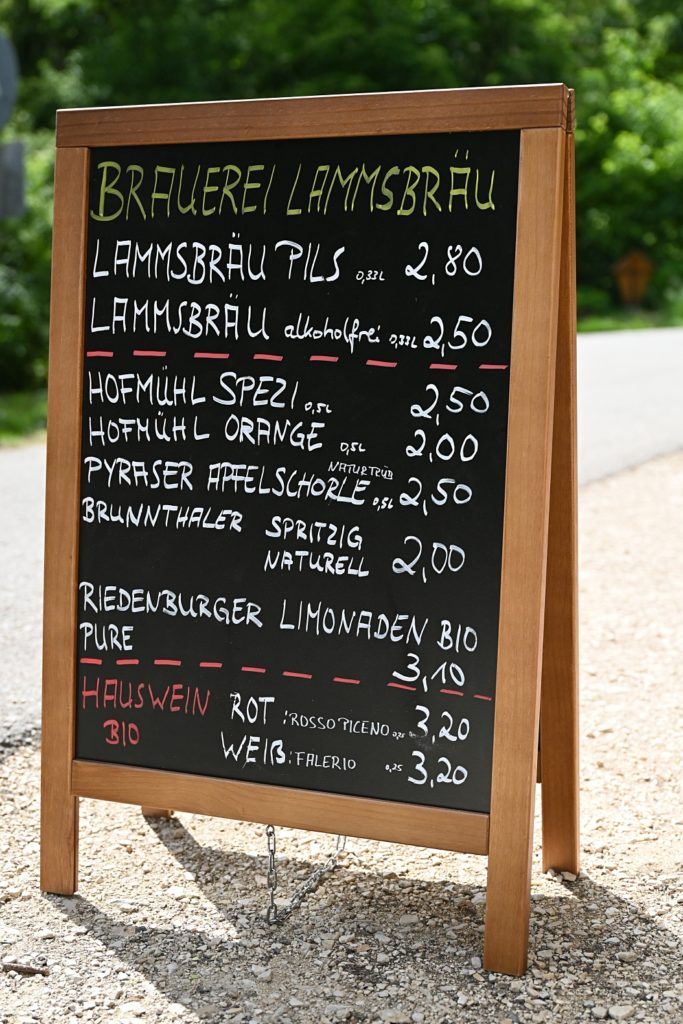 BRAUEREI LAMMSBRÄU
LAMMSBRÄU PILS 0,33L 2,80
LAMMSBRÄU alkoholfrei 0,33L 2,50
HOFMÜHL SPEZI 0,5L 2,50
HOFMÜHL ORANGE 0,5L 2,00
NATURTRÜB
PYRASER APFELSCHORLE 0,5L 2,50
BRUNNTHALER SPRITZIG
NATURELL 2,00
RIEDENBURGER LIMONADEN BIO
PURE 3,10
HAUSWEIN ROT :ROSSO PICENO 0,25 3,20
BIO WEIß: FALERIO 0,25 3,20